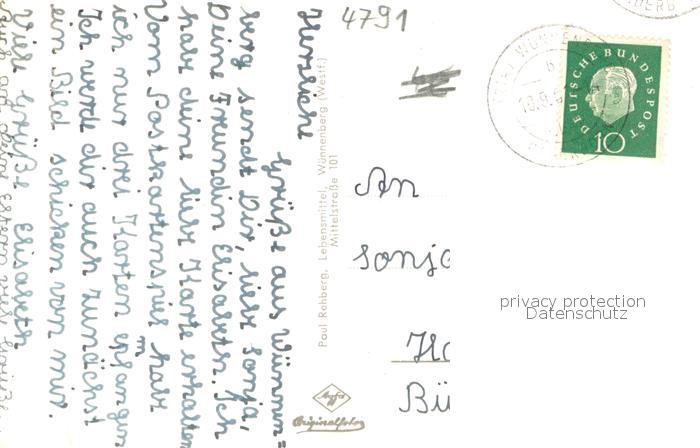 4791
Herzliche
Grüße aus Wünnen=
berg sendt Dir, liebe Sonja,
Deine Freundin Elisabeth. Ich
habe deine liebe Karte erhalten
Vom Postkartenspiel hab
ich nur drei Karten empfangen
Ich werde dir auch zunächst
ein Bild schicken von mir.
Viele Grüße Elisabeth
auch an deine Eltern viele Grüße
Paul Rohberg, Lebensmittel, Wünnenberg (Westf.)
Mittelstraße 101
Agfa
Originalfoto
DEUTSCHE BUNDESPOST
10
An
Sonja
Bü
privacy protection
Datenschutz